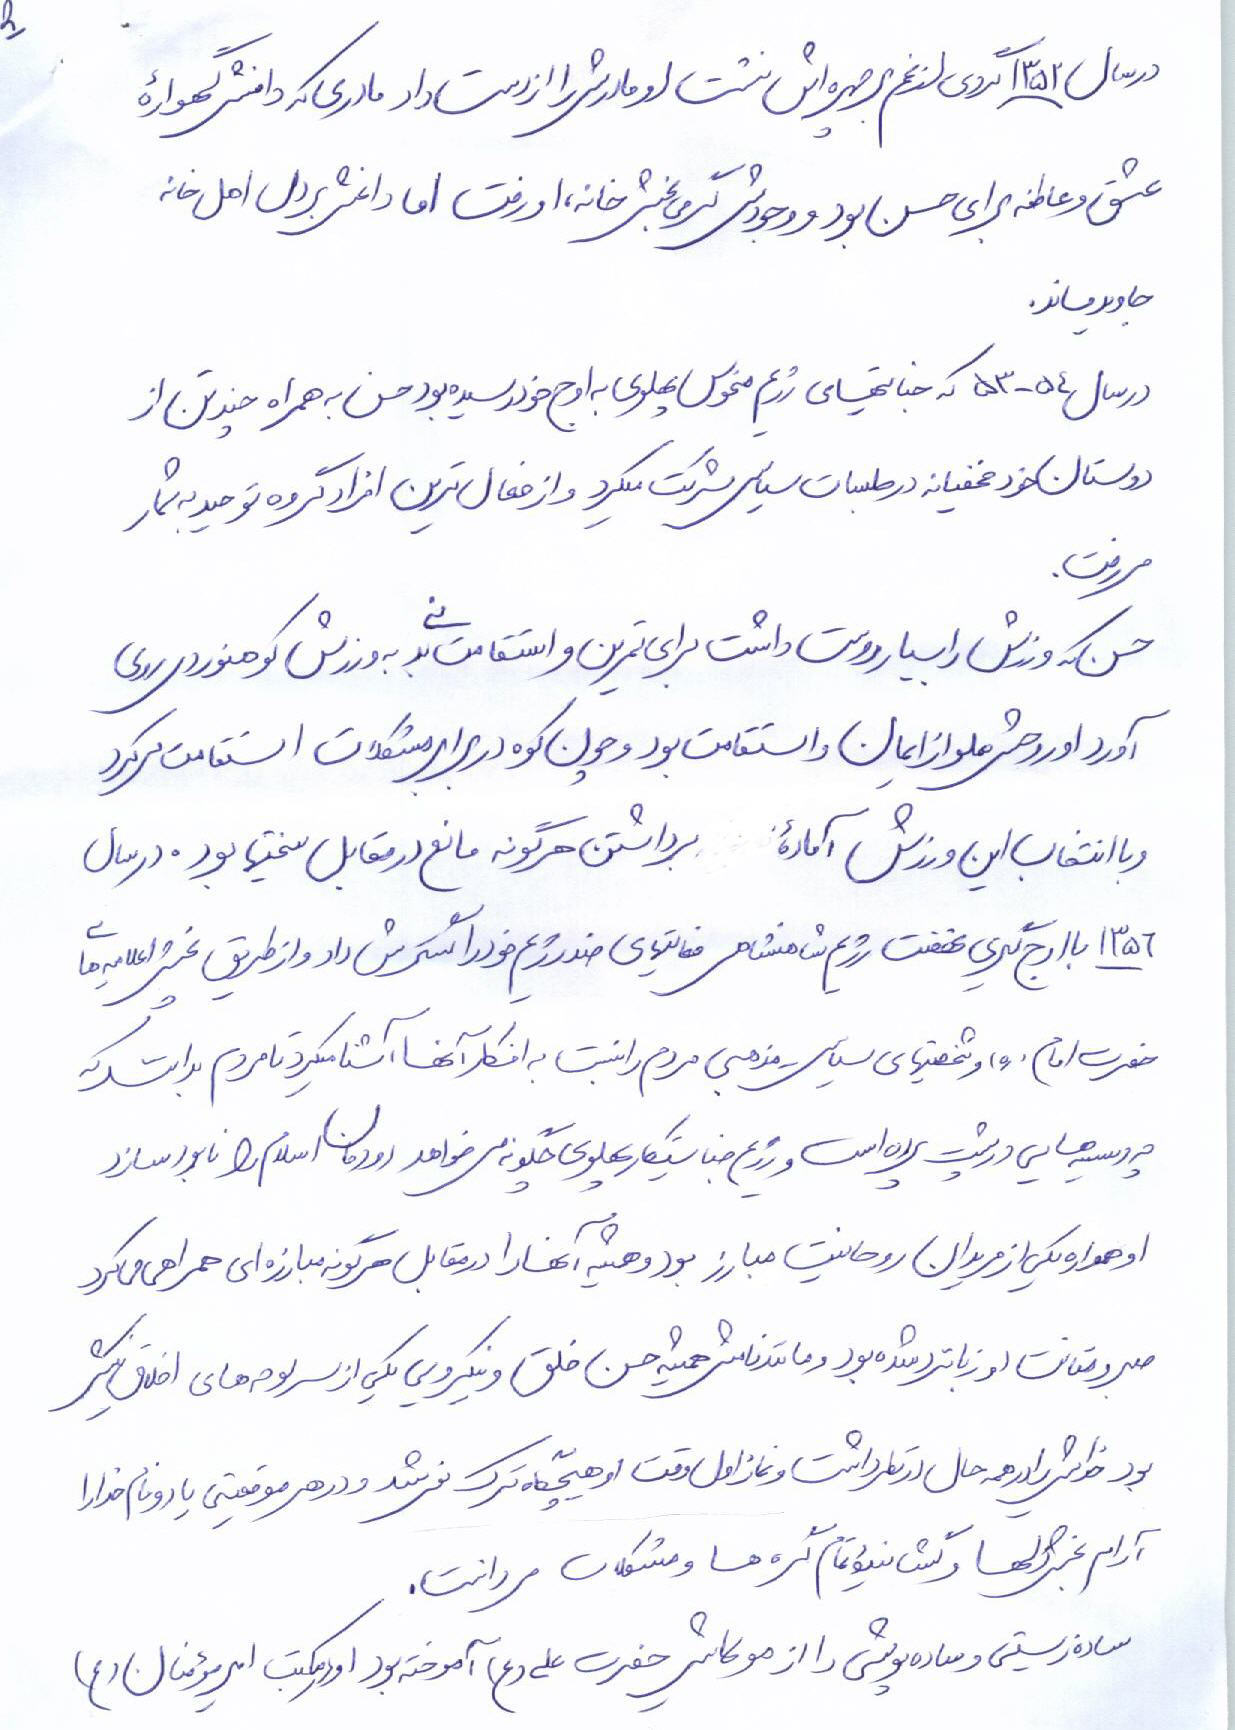 در سال ۱۳۵۲ گردی از غم بر چهره اش نشست او مادرش را از دست داد مادری که دامنش گهوارهٔ
عشق و عاطفه برای حسن بود و وجودش گرمی بخش خانه، او رفت اما داغش بر دل اهل خانه
جاوید بماند.
در سال ۵۴-۵۳ که جنایتهای رژیم منحوس پهلوی به اوج خود رسیده بود حسن به همراه چند تن از
دوستان خود مخفیانه در جلسات سیاسی شرکت میکرد و از فعال ترین افراد گروه توحید به شمار
می رفت.
حسن که ورزش را بسیار دوست داشت برای تمرین و استقامت بدنی به ورزش کوهنوردی روی
آورد او روحش مملو از ایمان و استقامت بود و چون کوه در برابر مشکلات استقامت می کرد
و با انتخاب این ورزش آمادهٔ برداشتن هرگونه مانع در مقابل سختیها بود . در سال
۱۳۵۶ با اوج گیری نهضت رژیم شاهنشاهی فعالیتهای ضد رژیم خود را گسترش داد و از طریق پخش اعلامیه های
حضرت امام (ره) و شخصیتهای سیاسی - مذهبی مردم را نسبت به افکار آنها آشنا میکرد تا مردم بدانند که
چه دسیسه هایی در پشت پرده است و رژیم جنایتکار پهلوی چگونه می خواهد دودمان اسلام را نابود سازد
او همواره یکی از مریدان روحانیت مبارز بود و همیشه آنها را در مقابل هرگونه مبارزه ای همراهی می کرد
صبر و متانت او زبانزد شده بود و مانند نامش همیشه حسن خلق و نیکرویی یکی از سر لوحه های اخلاق نیکش
بود خدایش را در همه حال در نظر داشت و نماز اول وقت او هیچگاه ترک نمی شد و در هر موقعیتی یاد و نام خدا را
آرام بخش دلها و گشایندهٔ تمام گره ها و مشکلات می دانست.
ساده زیستی و ساده پوشی را از مولایش حضرت علی (ع) آموخته بود او در مکتب امیر مؤمنان (ع)